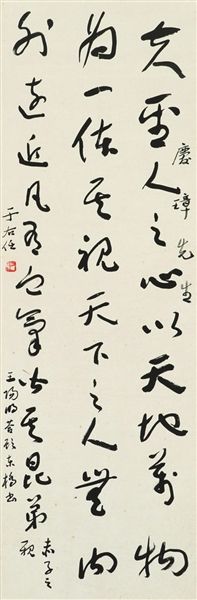 夫圣人之心以天地萬物
慶璋先生
为一体其視天下之人無内
外遠近凡有血氣皆其昆弟
赤子之親
王陽明答顧東橋書
于右任